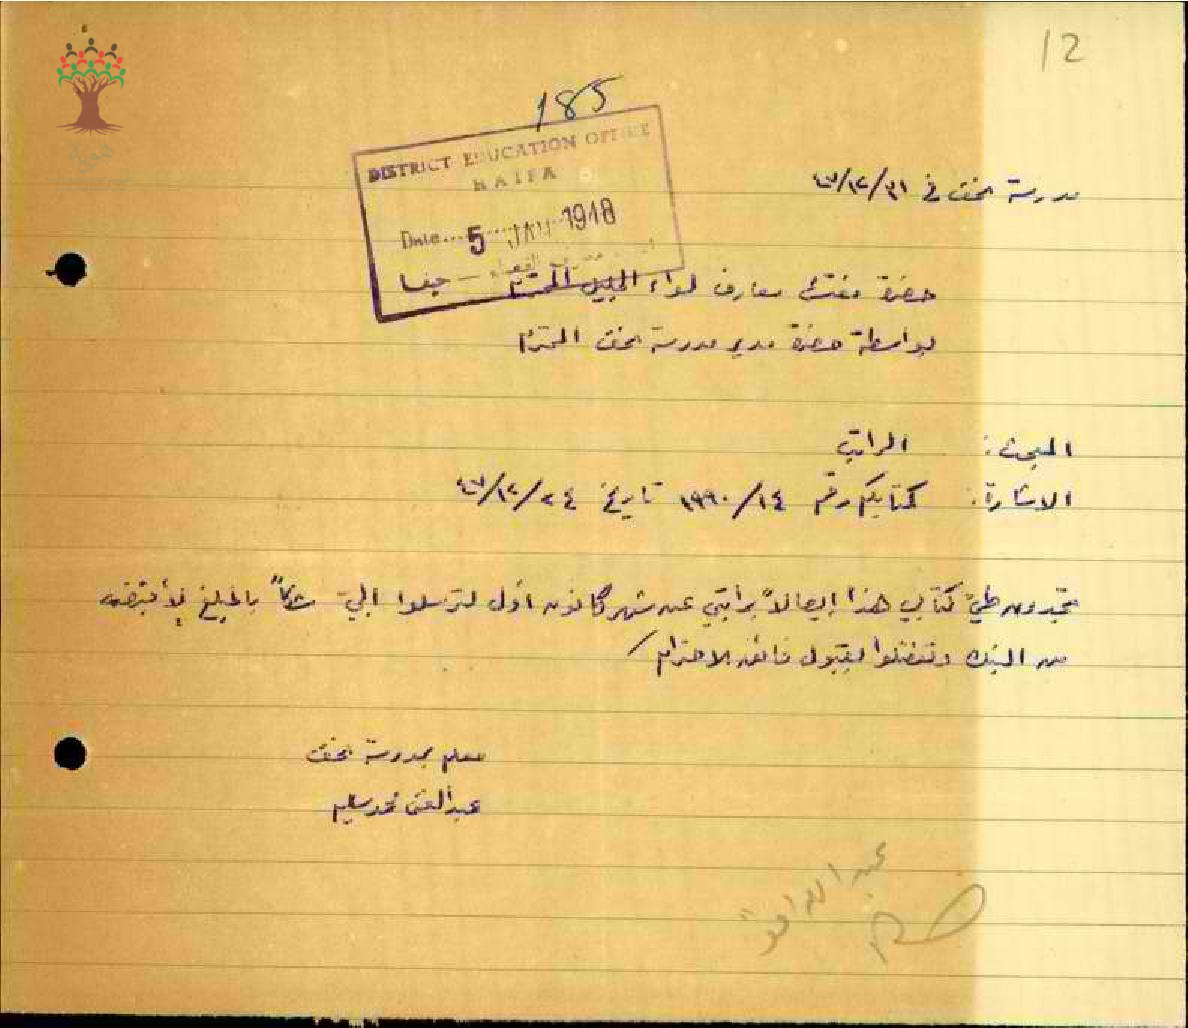 12
185
DISTRICT EDUCATION OFFICE
HAIFA
Date.... 5 JAN 1948
حيفا
مدرسة في ٤٧/١٢/٣١
حضرة مفتش معارف لواء الجليل المحترم
بواسطة حضرة مدير مدرسة المحترم
المبحث: الراتب
الاشارة: كتابكم رقم ١٩٩٠/١٤ تاريخ ٤٧/١٢/٢٤
تجدون طيّ كتابي هذا ايصالاً براتبي عن شهر كانون أول لترسلوا اليّ شكاً بالمبلغ لأقبضه
من البنك وتفضلوا بقبول فائق الاحترام /
معلم بمدرسة
محمد سليم
هوية